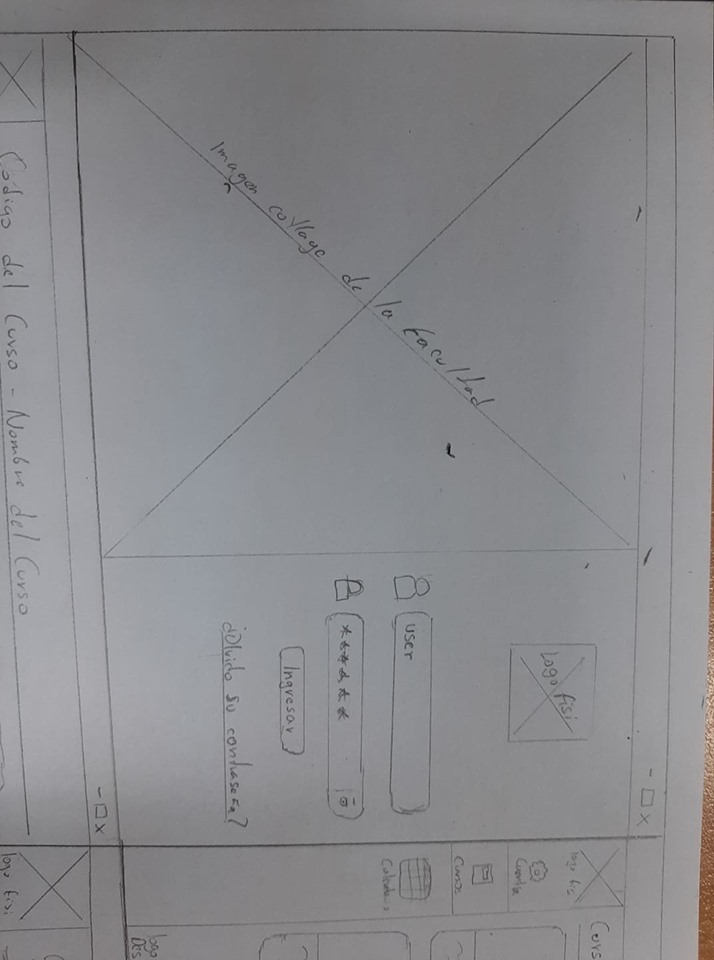 Logo fisi
Imagen collage de la Facultad
user
******
Ingresar
¿Olvido su contraseña?
logo fisi
Cuenta
Cursos
Calendario
Curs
logo
Des
Código del Curso - Nombre del Curso
logo fisi